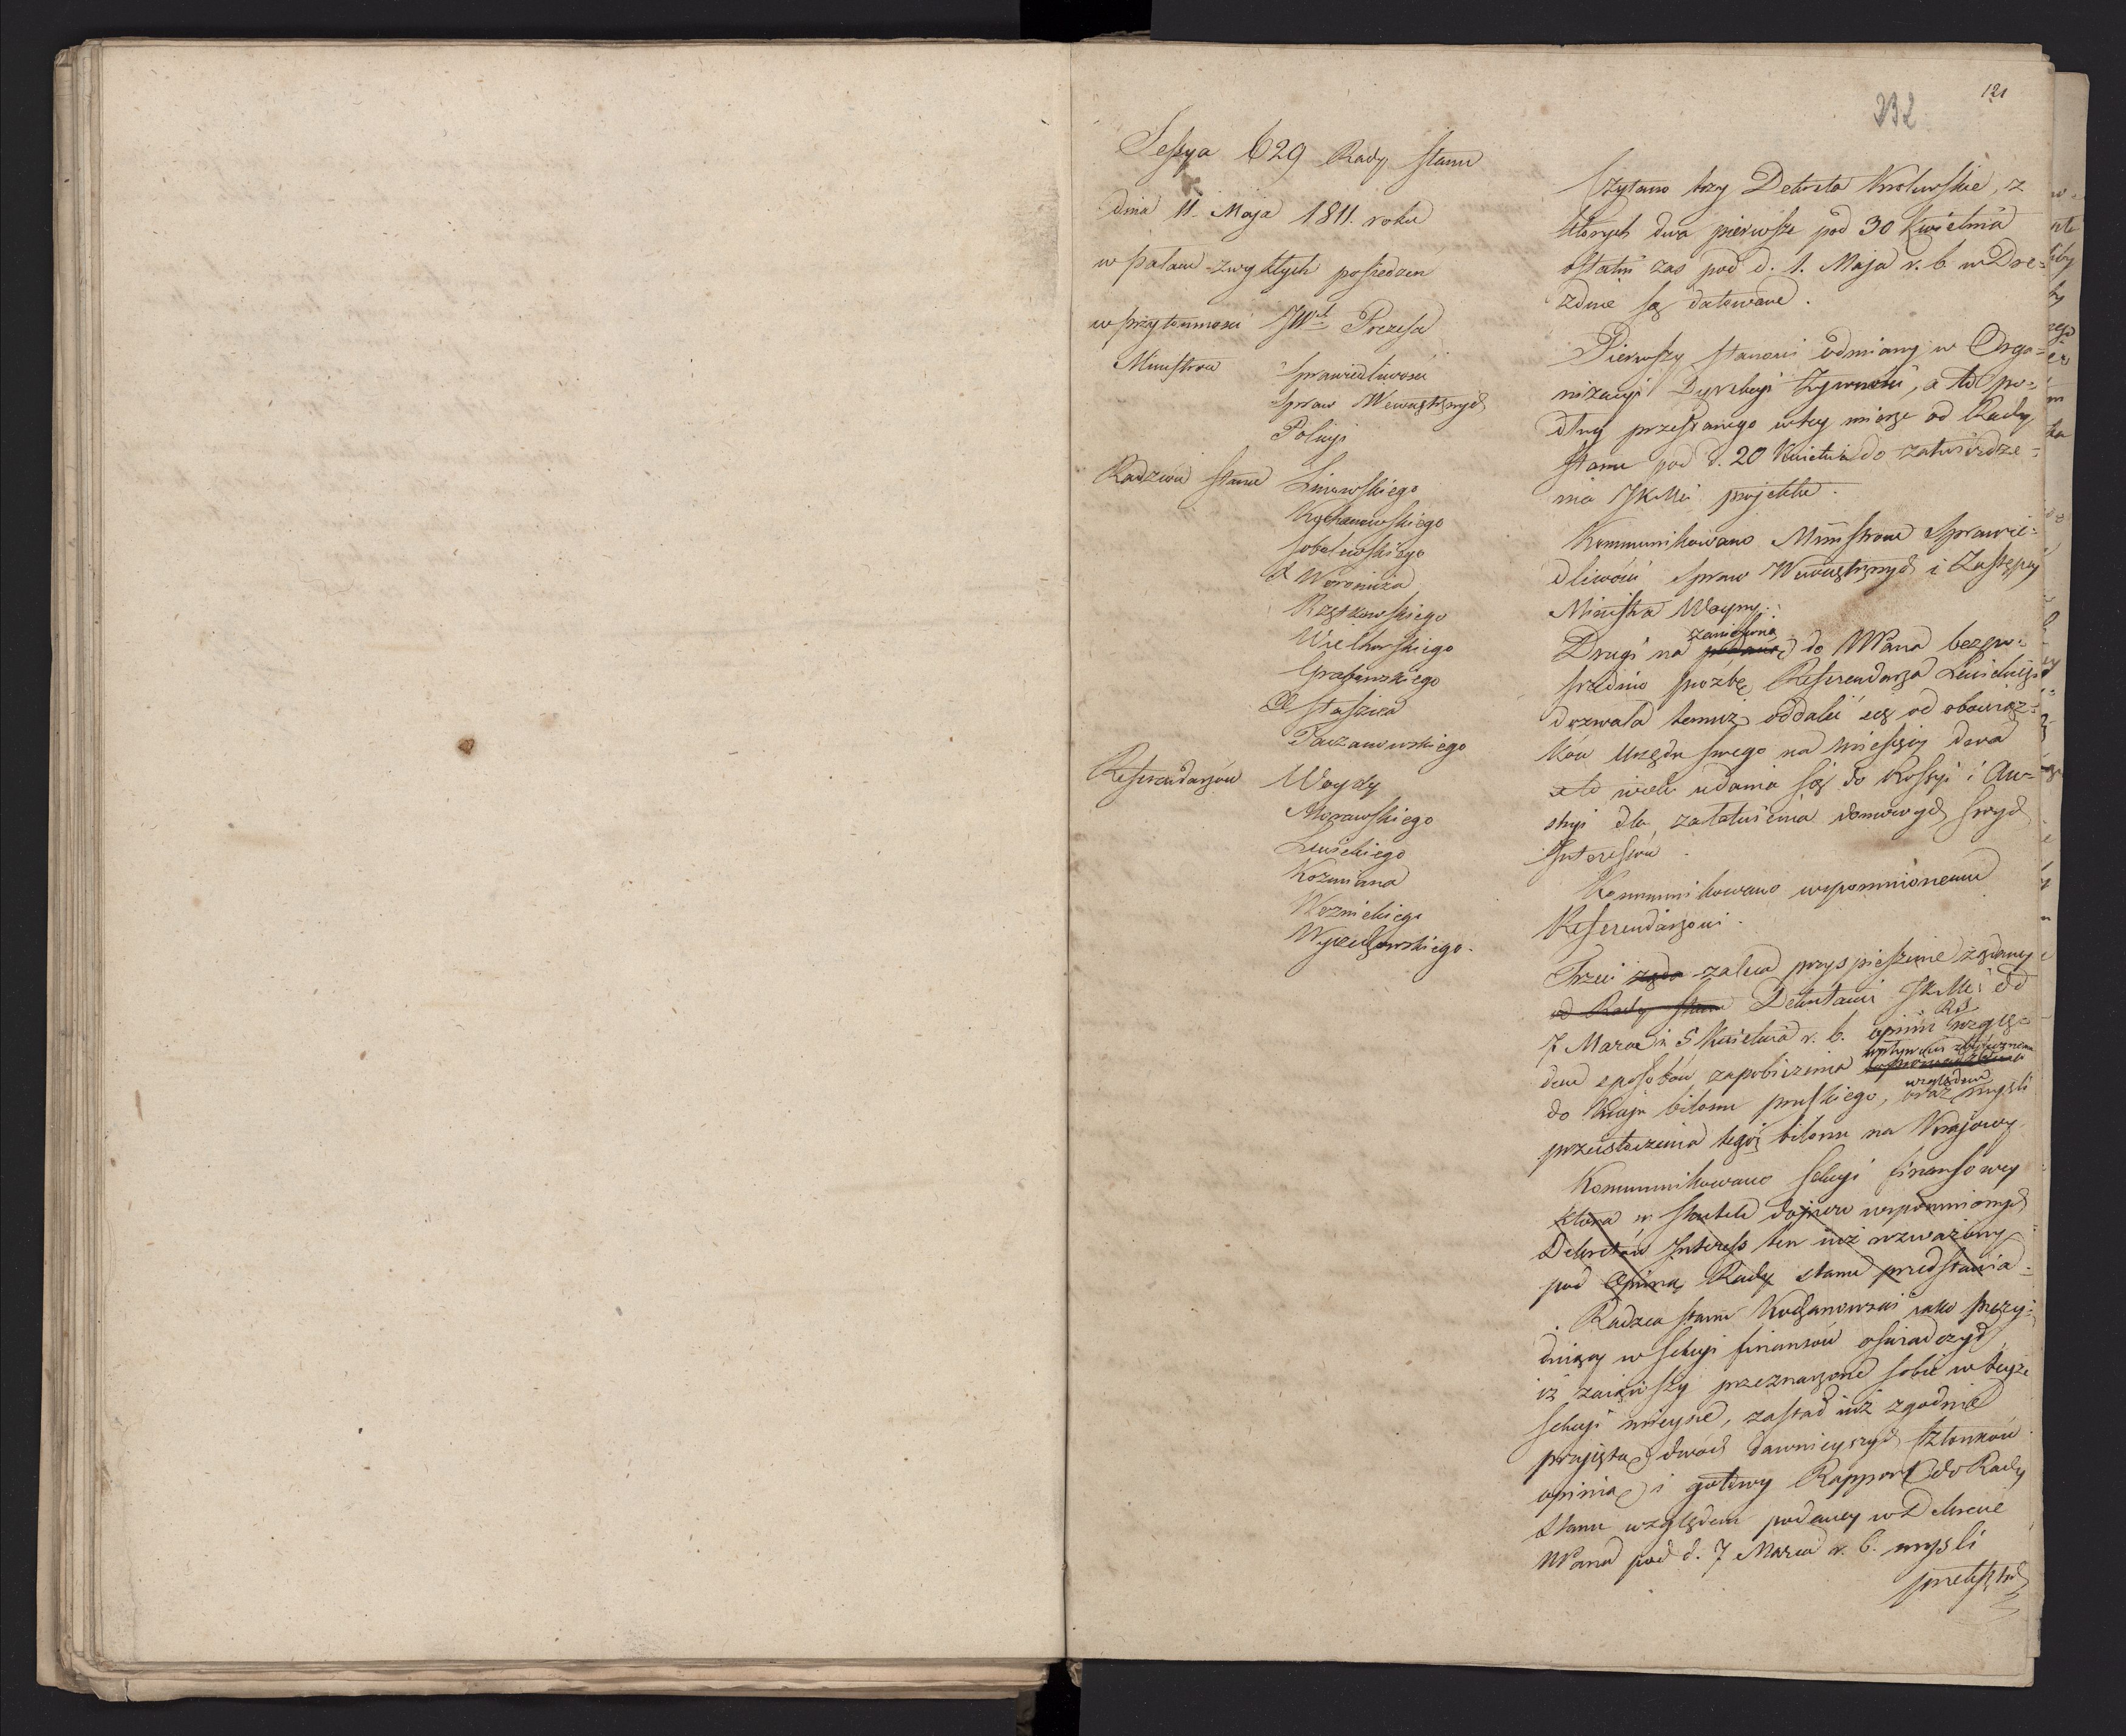 121
232
Sessya 629 Rady stanu
dnia 11. Maja 1811. roku
w pałacu zwykłych posiedzeń
w przytomności JW Prezesa
Ministrów Sprawiedliwości
Spraw Wewnętrznych
Policyi
Radzców stanu Linowskiego
Kochanowskiego
Sobolewskiego
X Woronicza
Rzątkowskiego
Wielhorskiego
Grabowskiego
X Staszica
Taczanowskiego
Referendarzów Woydy
Morawskiego
Lewickiego
Kozmiana
Woznickiego
Wyczechowskiego.
Czytano trzy Dekreta Krolewskie, z
których dwa pierwsze pod 30 Kwietnia
ostatni zaś pod d. 1. Maja r. b. w Dre=
zdnie są datowane.
Pierwszy stanowi odmiany w Orga=
nizacyi Dyrekcyi Żywności, a to po=
dług przesłanego w tey mierze od Rady
Stanu pod d. 20 Kwietnia do zatwierdze=
nia JKMci projektu.
Kommunikowano Ministrom Sprawie=
dliwości Spraw Wewnętrznych i Zastępcy
Ministra Woyny.
zaniesioną
Drugi na podaną do NPana bezpo=
średnio prozbę Referendarza Lewickiego
dozwala temuż oddalić się od obowiąz=
ków Urzędu swego na miesięcy dwa
a to w celu udania się do Rossyi i Au=
stryi dla załatwienia domowych swych
Interessów.
Kommunikowano wspomnionemu
Referendarzowi.
Trzeci żąda zaleca przyspieszenie żądaney
od Rady Stanu Dekretami JKMci dd
RS
7 Marca i 5 Kwietnia r. b. opinii wzglę=
dem sposobów zapobieżenia wpływowi zbytecznemu
względem
do Kraju bilonu pruskiego, oraz myśli
przeistoczenia tegoż bilonu na Krajowy.
Kommunikowano Sekcyi finansowey
która w skutek dopiero wspomnionych
Dekretów Interess ten już rozważony
pod Opinią Rady stanu przedstawia.
Radzca stanu Kochanowski iako prezy=
duiący w Sekcyi finansów oświadczył,
iż zaiąwszy przeznaczone sobie w teyże
Sekcyi mieysce, zastał już zgodnie
przyjętą dwóch dawnieyszych Członków
opinią i gotowy Rapport do Rady
Stanu względem podaney w Dekrecie
NPana pod d. 7 Marca r. b. myśli